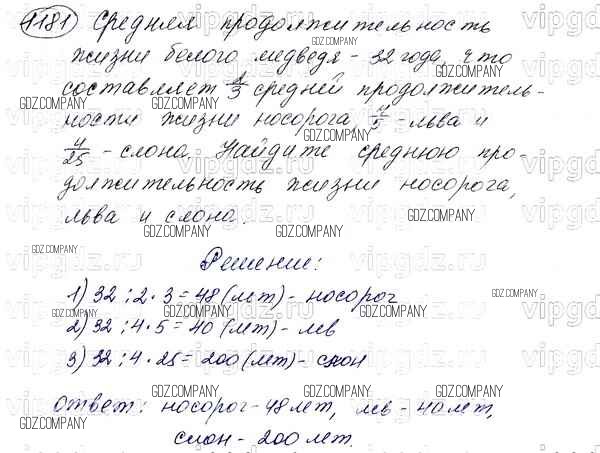 1181 Средняя продолжительность
жизни белого медведя - 32 года, что
составляет 2/3 средней продолжитель-
ности жизни носорога, 4/5 - льва и
4/25 - слона. Найдите среднюю про-
должительность жизни носорога,
льва и слона.
Решение:
1) 32 : 2 · 3 = 48 (лет) - носорог
2) 32 : 4 · 5 = 40 (лет) - лев
3) 32 : 4 · 25 = 200 (лет) - слон
Ответ: носорог - 48 лет, лев - 40 лет,
слон - 200 лет.